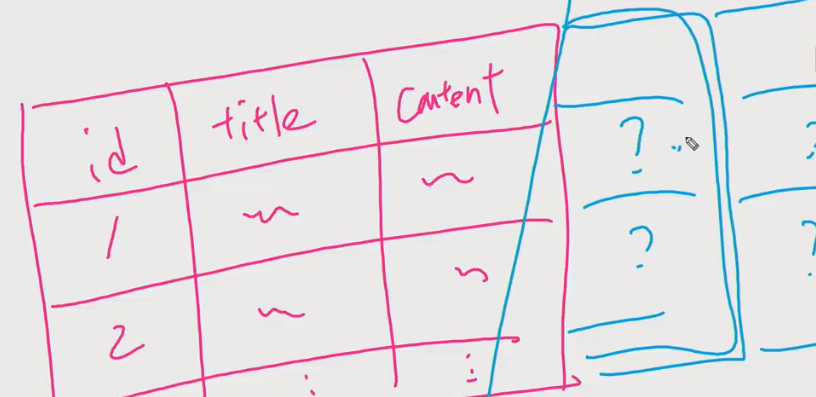 id title Content
1 ?
2 ?